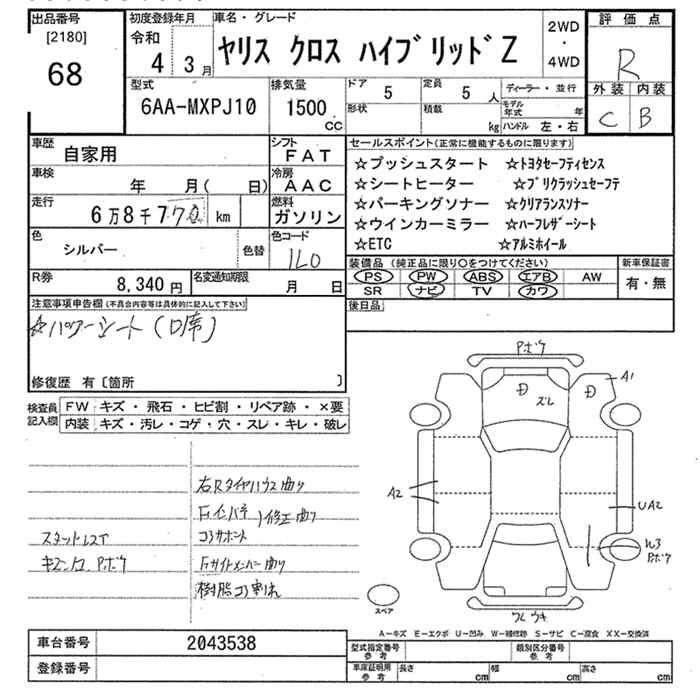 出品番号
[2180]
68
初度登録年月
令和
4 3月
車名・グレード
ヤリス クロス ハイブリッドZ
2WD
・
4WD
評価点
R
外装 内装
C B
型式
6AA-MXPJ10
排気量
1500 CC
ドア 5
定員 5 人
ディーラー・並行
形状
積載 kg
モデル年式 年
ハンドル 左・右
車歴 自家用
シフト FAT
車検 年 月( 日)
冷房 AAC
走行 6万8千770 km
燃料 ガソリン
色 シルバー 色替
色コード 1L0
R券 8,340円
名変通知期限 月 日
セールスポイント(正常に機能するものに限ります)
☆プッシュスタート ☆トヨタセーフティセンス
☆シートヒーター ☆プリクラッシュセーフテ
☆パーキングソナー ☆クリアランスソナー
☆ウインカーミラー ☆ハーフレザーシート
☆ETC ☆アルミホイール
装備品 (純正品に限り○をつけてください)
新車保証書
PS PW ABS エアB AW
有・無
SR ナビ TV カワ
後日品
注意事項申告欄(不具合内容等は具体的に記入して下さい)
☆パワーシート(D席)
修復歴 有〔箇所 〕
検査員記入欄
FW キズ・飛石・ヒビ割・リペア跡・×要
内装 キズ・汚レ・コゲ・穴・スレ・キレ・破レ
右Rタイヤハウス曲り
コアサポート
樹脂コア割れ
Pボウ
D
ズレ
D
A1
A2
UA2
W3
Pボウ
スペア
A-キズ E-エクボ U-凹み W-補修跡 S-サビ C-腐食 XX-交換済
車台番号 2043538
登録番号
型式指定番号 参考
類別区分番号 参考
車庫証明用 参考
長さ cm
幅 cm
高さ cm